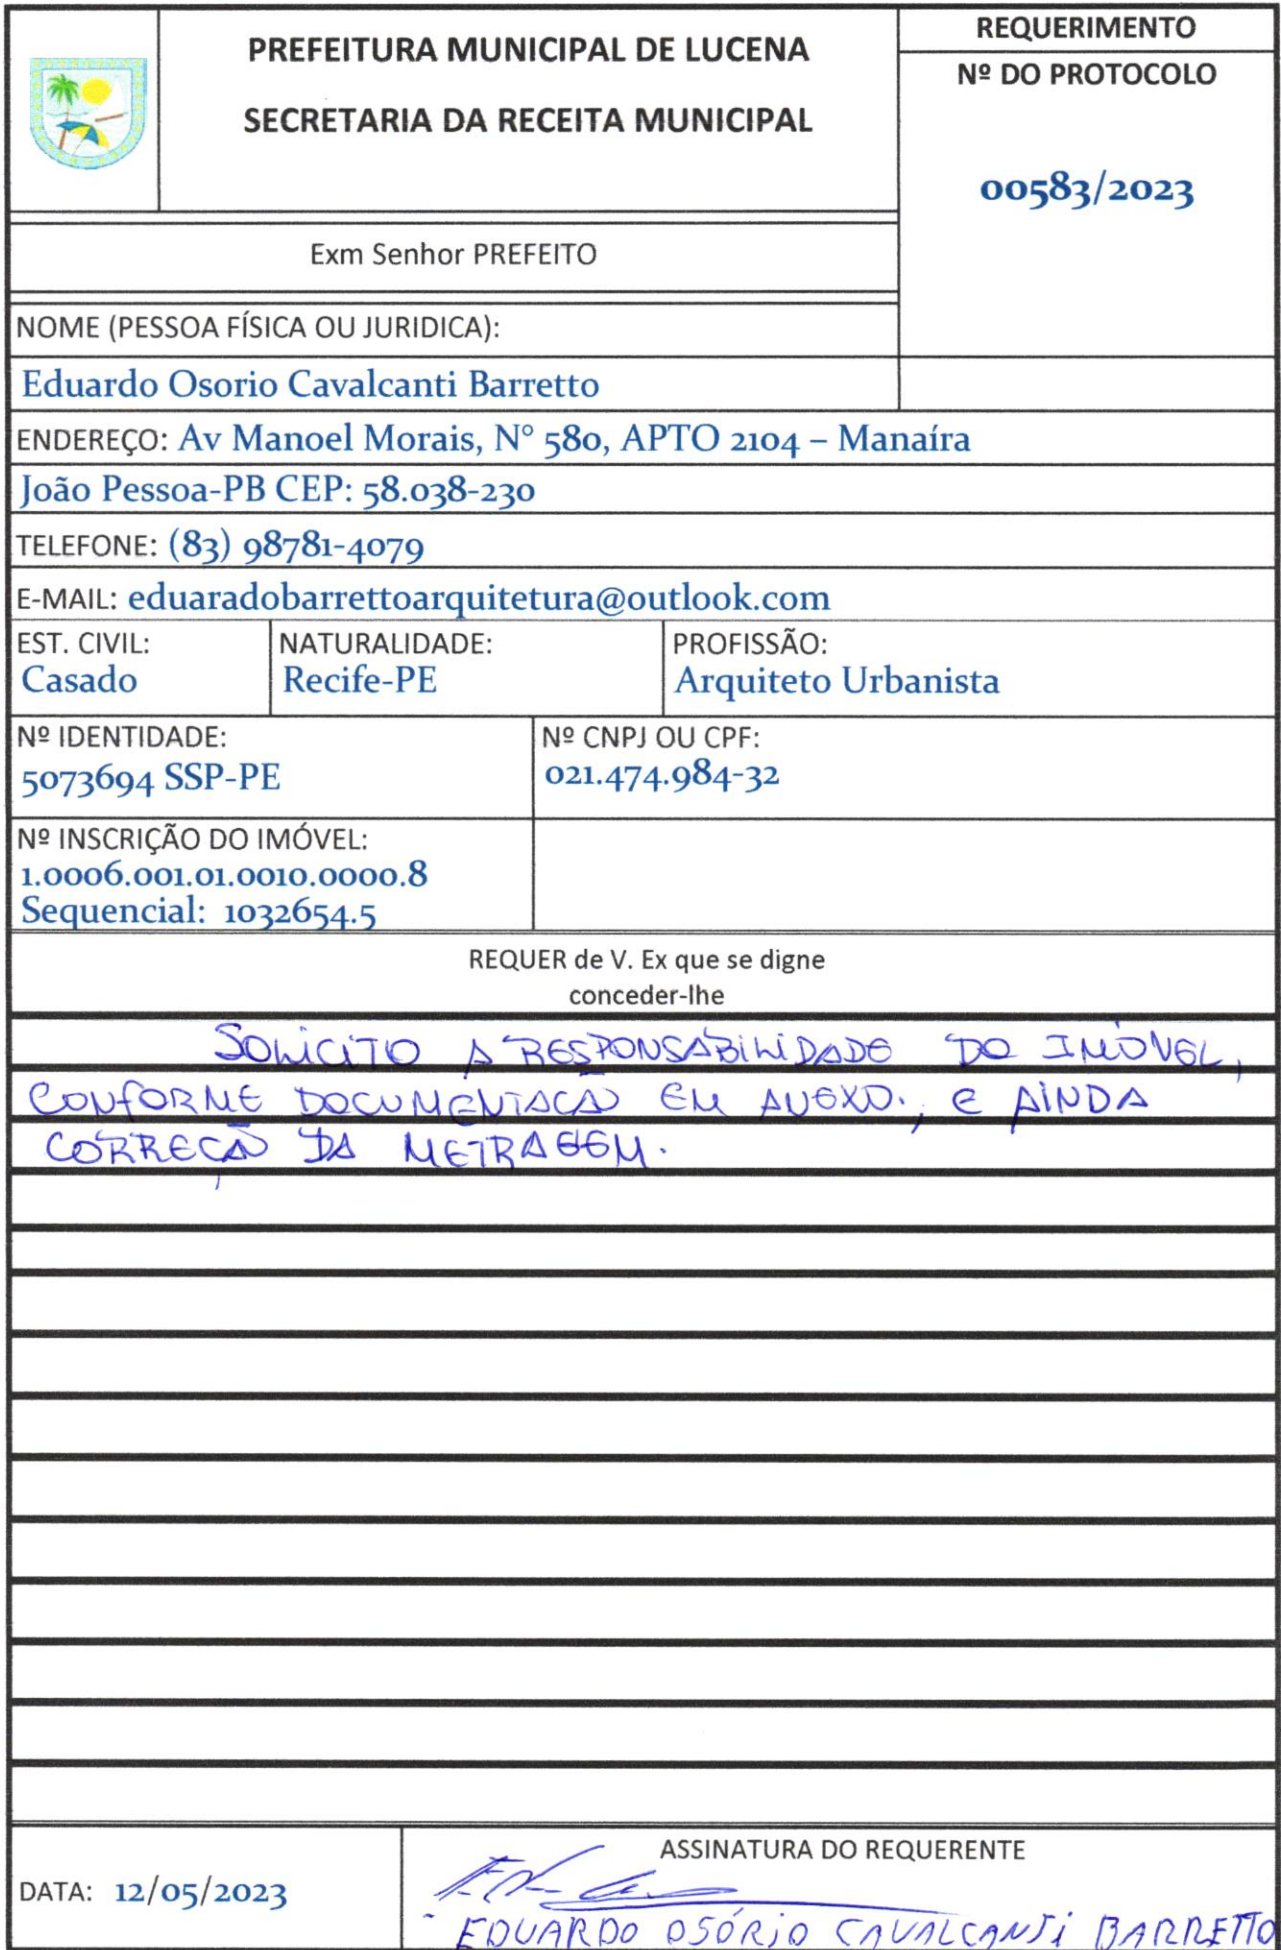 PREFEITURA MUNICIPAL DE LUCENA
SECRETARIA DA RECEITA MUNICIPAL
REQUERIMENTO
Nº DO PROTOCOLO
00583/2023
Exm Senhor PREFEITO
NOME (PESSOA FÍSICA OU JURIDICA):
Eduardo Osorio Cavalcanti Barretto
ENDEREÇO: Av Manoel Morais, N° 580, APTO 2104 – Manaíra
João Pessoa-PB CEP: 58.038-230
TELEFONE: (83) 98781-4079
E-MAIL: eduaradobarrettoarquitetura@outlook.com
EST. CIVIL:
Casado
NATURALIDADE:
Recife-PE
PROFISSÃO:
Arquiteto Urbanista
Nº IDENTIDADE:
5073694 SSP-PE
Nº CNPJ OU CPF:
021.474.984-32
Nº INSCRIÇÃO DO IMÓVEL:
1.0006.001.01.0010.0000.8
Sequencial: 1032654.5
REQUER de V. Ex que se digne
conceder-lhe
SOLICITO A RESPONSABILIDADE DO IMÓVEL,
CONFORME DOCUMENTACAO EM ANEXO., E AINDA
CORREÇÃO DA METRAGEM.
DATA: 12/05/2023
ASSINATURA DO REQUERENTE
EDUARDO OSÓRIO CAVALCANTI BARRETTO